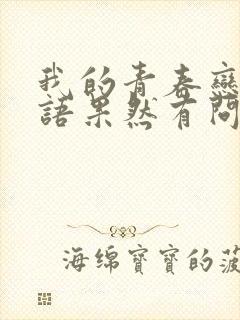 我的青春戀
語果然有問
海绵寶寶的菠